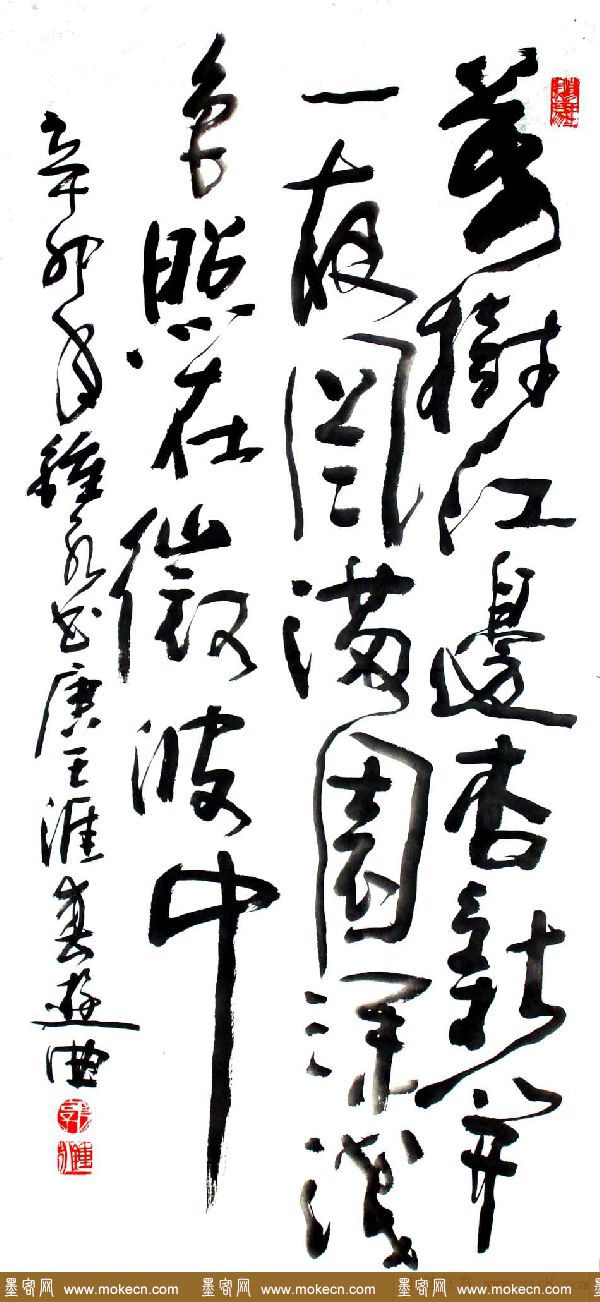 萬樹江邊杏新開
一夜風滿園深淺
色照在微波中
辛卯年鍾永书唐王涯春遊曲
墨客网 www.mokecn.com 墨客网 www.mokecn.com 墨客网 www.mokecn.com